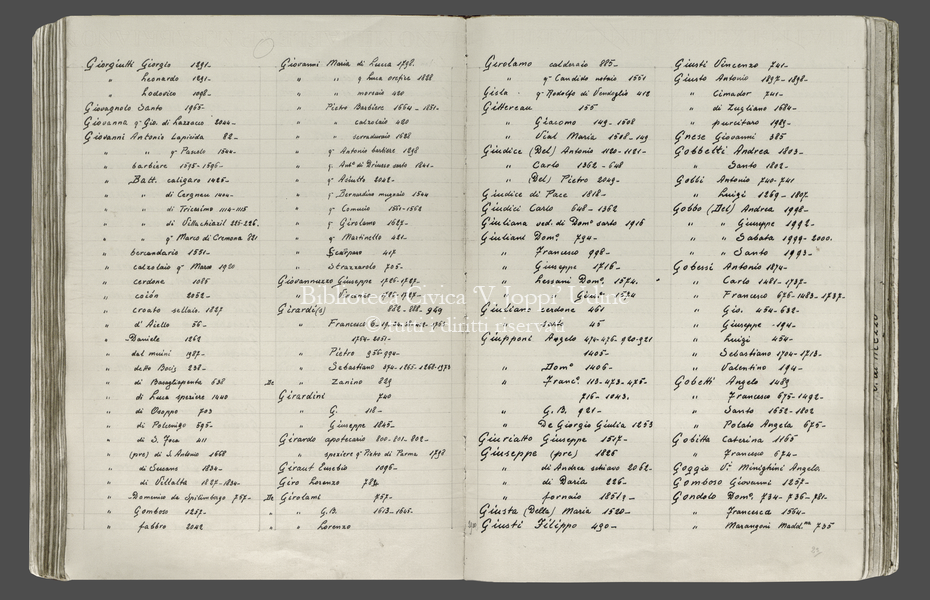 Giorgiutti Giorgio 1291-
" Leonardo 1291-
" Lodovico 1098-
Giovagnolo Santo 1965-
Giovanna q.m Gio. di Lazzacco 2044-
Giovanni Antonio Lapicida 82-
" " q.m Pasolo 1544-
" barbiere 1595-1596-
" Batt. caligaro 1425-
" " di Cergneu 1404-
" " di Tricesimo 1114-1115
" " di Villachiazil 225-226.
" " q.m Marco di Cremona 221
" bercandario 1551-
" calzolaio q.m Marco 1920
" cerdone 1085
" 2052-
" croato sellaio. 1827
" d'Aiello 56-
" Daniele 1262
" del muini 1927-
" detto 238-
" di 638
" di Luca speziere 1440
" di Osoppo 703
" di Polcenigo 595-
" di S. Foca 411
" (pre) di S. Antonio 1668
" di Susans 1834-
" di Villalta 1827-1834-
" Domenico da Spilimbago 757-
" Gomboso 1257-
" fabbro 2042
Giovanni Maria di Lucca 1798.
" " q Luca orefice 1828
" " merciaio 420
" Pietro Barbiere 1554-1851-
" " calzolaio 420
" " 1628
" q. Antonio barbiere 1298
" q. di sarto 1841-
" q. 2042-
" q. Bernardino mugnaio 1544
" q. 1551-1552
" q. Girolamo 1627-
" q. Martinello 421-
" Scarparo 417
" Strazzarolo 705-
Giovannuzzo Giuseppe 1726-1727-
Girardi(s) 222-228-949
" Francesco
1754-2051-
" Pietro 956-994-
" Sebastiano 370-1265-1268-1973
De " Zanino 829
Girardini 740
" G. 118-
" Giuseppe 1845-
Girardo apotecario 800-801-802-
" speziere q.m Pietro di Parma 1798
Giraut Eusebio 1096-
Giro Lorenzo 782
De Girolami 757-
" " G.B. 1613-1645.
" " Lorenzo
Gerolamo calderaio 885-
" q.m Candido notaio 1551
Gisla q.m Rodolfo di Vendoglio 412
Gittereau 155
" Giacomo 149-1508
" Vial Maria 1508-149
Giudice (Del) Antonio 1120-1121-
" Carlo 1362-648
" (Del) Pietro 2049-
Giudice di Pace 1818-
Giudici Carlo 648-1362
Giuliana ved. di Dom.º sarto 1916
Giuliani Dom.º 794-
" Francesco 998-
" Giuseppe 1716-
" Lessani Dom.º 1574.
" Giulio 1574
Giuliano cerdone 461
" sarto 45
Giupponi Angelo 474-476-920-921
1405-
" Dom.º 1406-
" Franc.º 113-473-475-
716-1043.
" G.B. 921-
" De Giorgio Giulia 1253
Giurialto Giuseppe 1517-
Giuseppe (pre) 1825
" di Andrea schiavo 2062-
" di Daria 226-
" fornaio 1851?-
Giusta (Della) Maria 1520-
Giusti Filippo 490-
Giusti Vincenzo 741-
Giusto Antonio 1897-1898-
" Cimador 741-
" di Zugliano 1684-
" purcitaro 1989-
Gnese Giovanni 385
Gobbetti Andrea 1803-
" Santo 1802-
Gobbi Antonio 740-741
" Luigi 1269-1807.
Gobbo (Del) Andrea 1992-
" " Giuseppe 1992-
" " Sabata 1999-2000.
" " Santo 1993-
Gobessi Antonio 1874-
" Carlo 1481-1737-
" Francesco 675-1483-1737-
" Gio. 454-632-
" Giuseppe 194-
" Luigi 454-
" Sebastiano 1704-1713-
" Valentino 194-
Gobetti Angelo 1489
" Francesco 675-1492-
" Santo 1552-1802
" Polado Angela 675-
Gobitta Caterina 1165
" Francesco 674-
Goggio V.ª Minighini Angela
Gomboso Giovanni 1257-
Gondolo Dom.º 734-736-781-
" Francesca 1554-
" Marangoni Madd.na 735
Biblioteca Civica 'V. Joppi' Udine
© tutti i diritti riservati